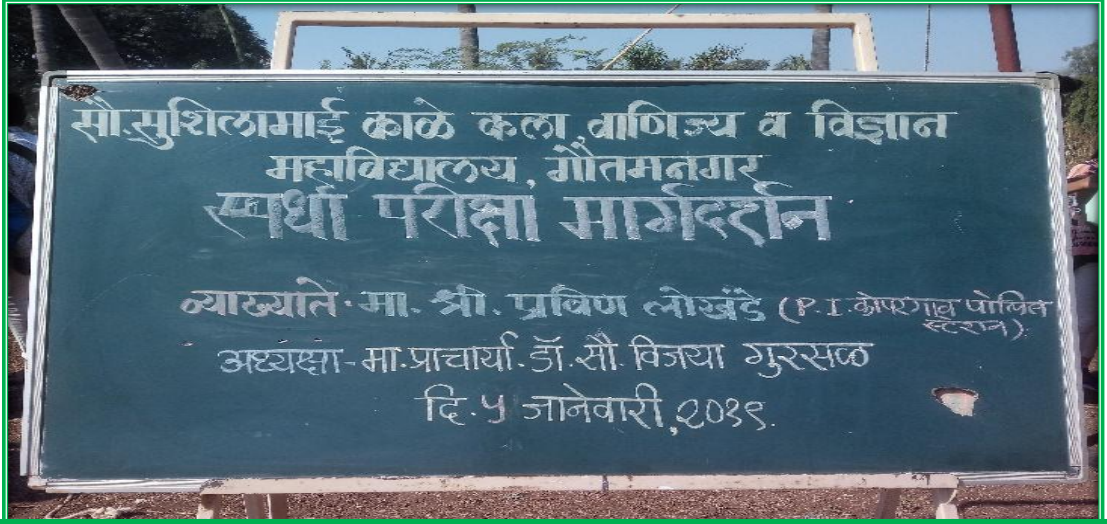 सौ.सुशिलामाई काळे कला,वाणिज्य व विज्ञान
महाविद्यालय, गौतमनगर
स्पर्धा परीक्षा मार्गदर्शन
व्याख्याते- मा. श्री. प्रविण लोखंडे (P.I.कोपरगाव पोलिस
स्टेशन).
अध्यक्षा-मा.प्राचार्या.डॉ.सौ.विजया गुरसळ
दि.५ जानेवारी,२०१९.